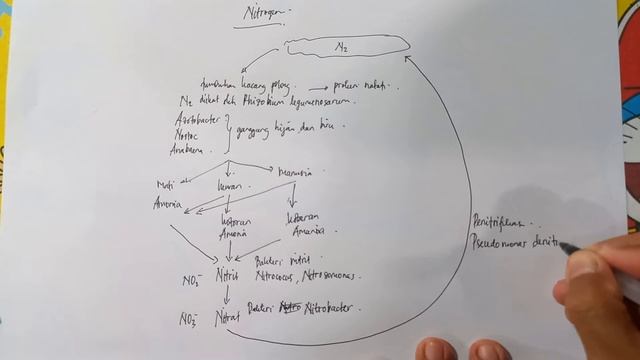 Nitrogen
N2
tumbuhan kacang polong → protein nabati
N2 diikat oleh Rhizobium leguminosarum
Azotobacter
Nostoc
Anabaena
ganggang hijau dan biru
Mati
hewan
manusia
Amonia
kotoran
Amonia
kotoran
Amonia
Bakteri nitrit
NO2- Nitrit Nitrococus, Nitrosomonas
NO3- Nitrat Bakteri Nitrobacter
Denitrifikasi
Pseudomonas denitri